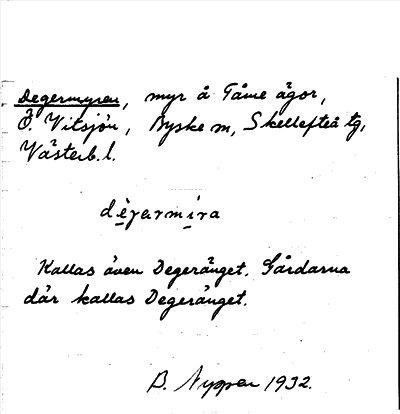 Degermyren, myr å Tåme ägor,
Ö. Vitsjön, Byske m, Skellefteå tg,
Västerb. l.
dègarmira
Kallas även Degeränget. Gårdarna
där kallas Degeränget.
B. Nygren 1932.